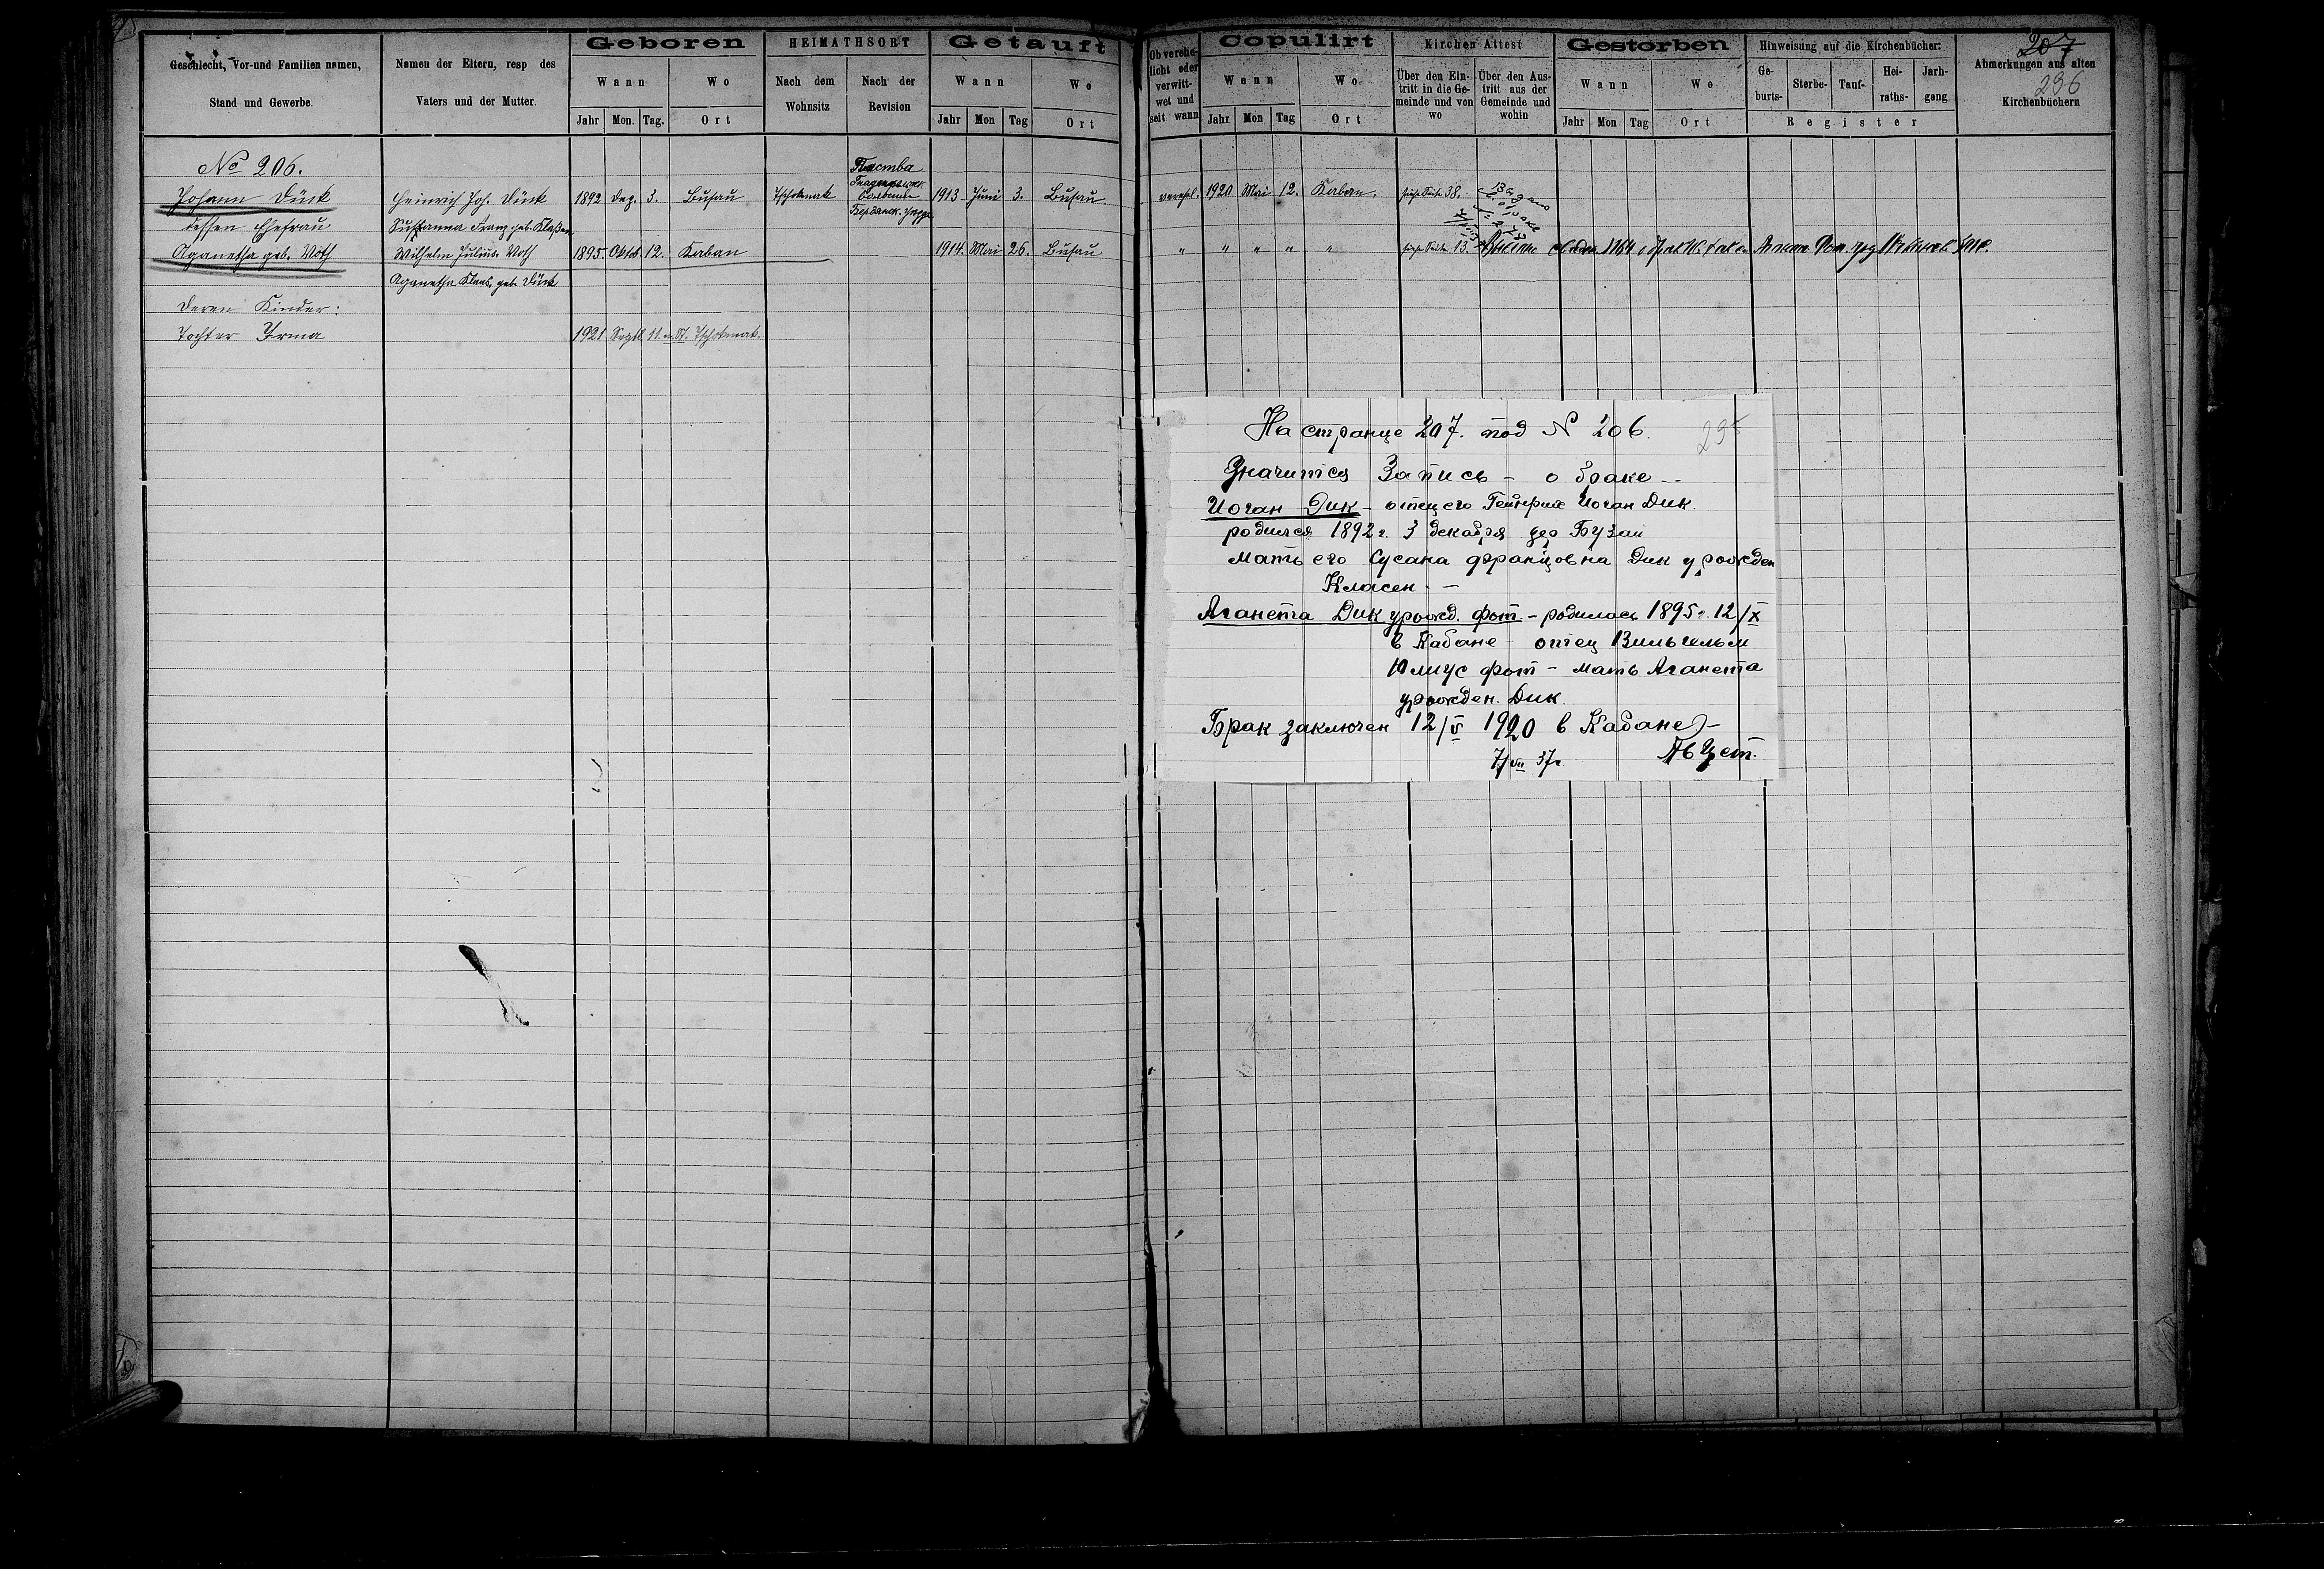 Geschlecht, Vor-und Familien namen,
Stand und Gewerbe.
Namen der Eltern, resp des
Vaters und der Mutter.
Geboren
Wann
Wo
Jahr Mon. Tag.
Ort
HEIMATHSORT
Nach dem
Wohnsitz
Nach der
Revision
Getauft
Wann
Wo
Jahr Mon Tag
Ort
No 206.
Johann Dück
Heinrich Joh. Dück
1892 Dez. 3. Busau
Tschokmak
1913 Juni 3. Busau
dessen Ehefrau
Susanna Franz geb. Klaßen
Aganetha geb. Voth
Wilhelm Julius Voth
1895. Oktob. 12. Kaban
1914. Mai 26. Busau
Aganetha Klaas. geb. Dück
Deren Kinder:
Tochter Irma
1921 Septb. 11. n. St. Tschokmak.
Ob verehe-
licht oder
verwitt-
wet und
seit wann
Copulirt
Wann
Wo
Jahr Mon Tag
Ort
Kirchen Attest
Über den Ein-
tritt in die Ge-
meinde und von
wo
Über den Aus-
tritt aus der
Gemeinde und
wohin
Gestorben
Wann
Wo
Jahr Mon Tag
Ort
Hinweisung auf die Kirchenbücher:
Ge-
burts-
Sterbe-
Tauf-
Hei-
raths-
Jarh-
gang
Register
207
Abmerkungen aus alten
236
Kirchenbüchern
verehl. 1920 Mai 12. Kaban.
siehe Seite 38.
" " " " "
siehe Seite 13.
На странце 207. под N 206.
Значится Запись - о браке --
Иоган Дик - отец его Гейнрих Иоган Дик.
родился 1892 г. 3 декабря дер Бузау
Мать его Сусана францовна Дик урожден
Класен -
Аганета Дик урожд. фот. - родилась 1895 г. 12/X
в Кабане отец Вильгельм
Юлиус фот - мать Аганета
урожден. Дик.
Брак заключен 12/V 1920 в Кабане -
7/VII 37г.